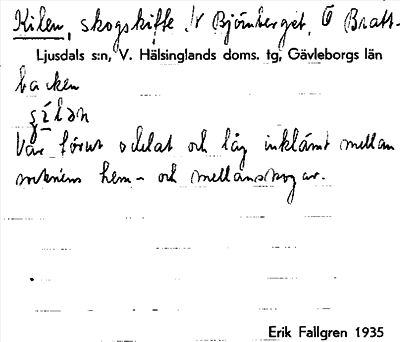 Kilen, skogskifte N Björnberget, Ö Bratt-
Ljusdals s:n, V. Hälsinglands doms. tg, Gävleborgs län
backen
Var förut odelat och låg inklämt mellan
hem- och mellanskogar.
Erik Fallgren 1935